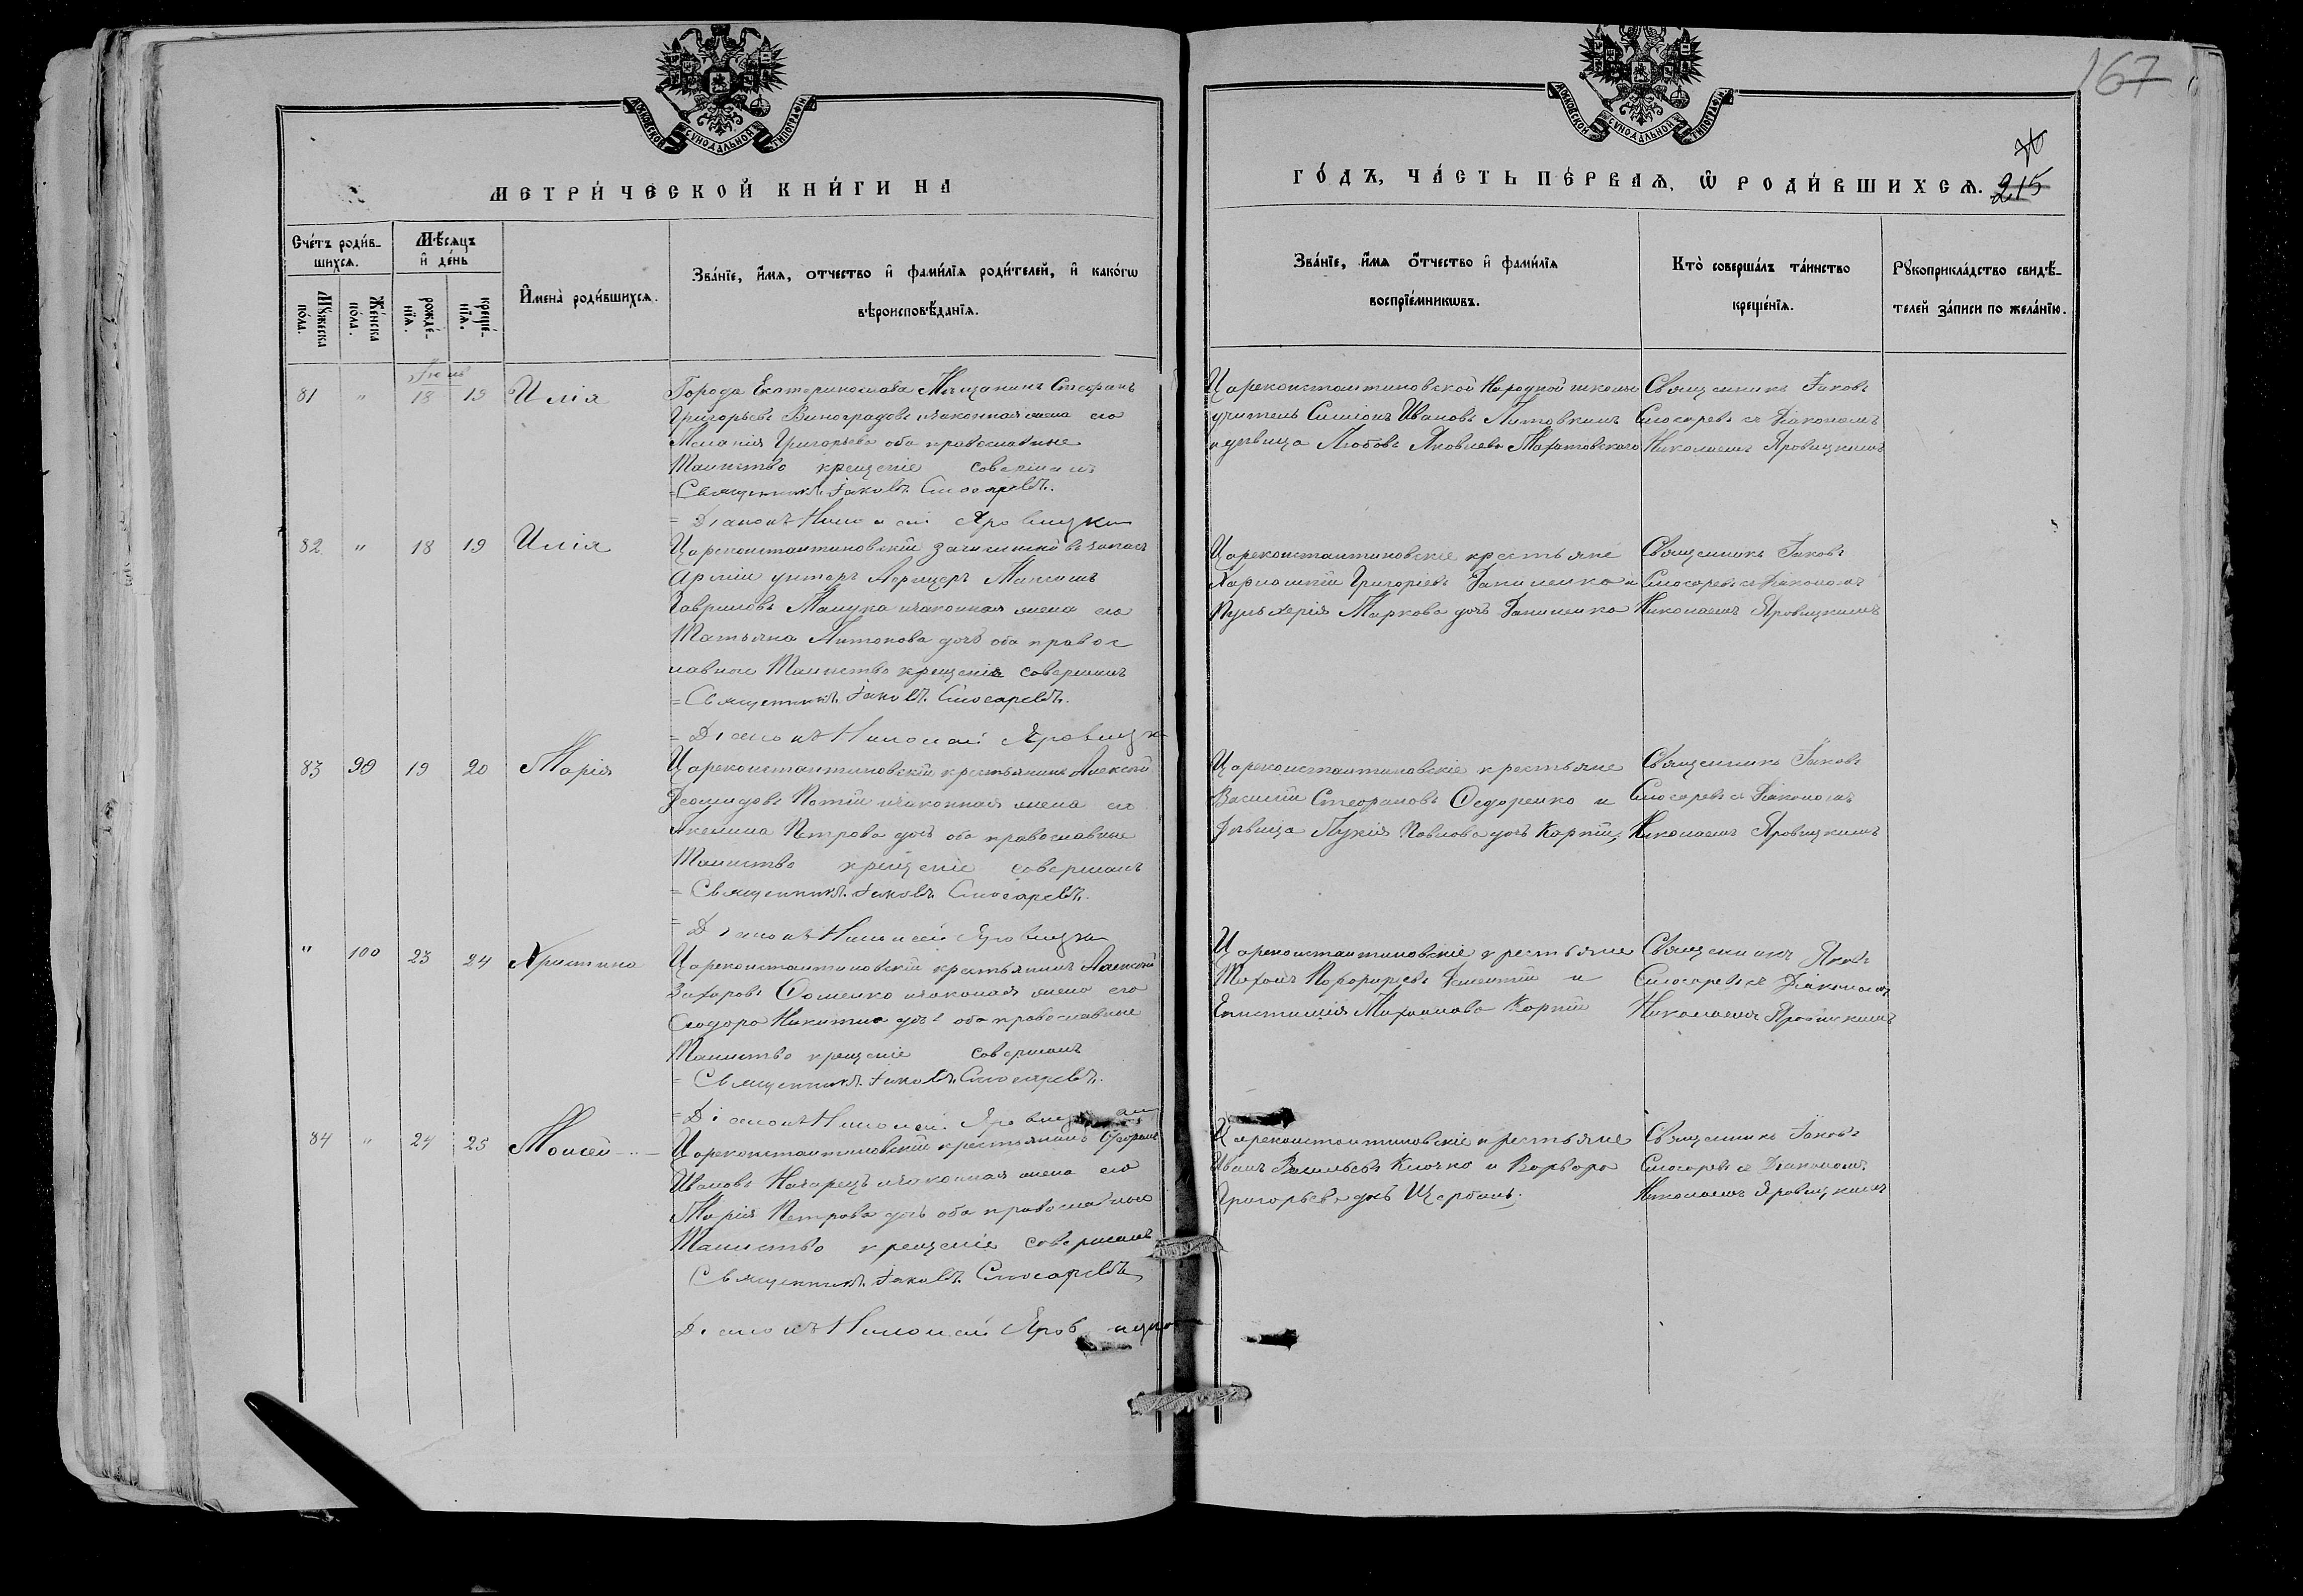 МОСКОВСКОЙ СѴНОДАЛЬНОЙ ТИПОГРАФІИ
МОСКОВСКОЙ СѴНОДАЛЬНОЙ ТИПОГРАФІИ
167
МЕТРИ́ЧЕСКОЙ КНИ́ГИ НА
ГО́ДЪ, ЧА́СТЬ ПЕ́РВАЯ, Ѡ РОДИ́ВШИХСЯ.
215
Сче́тъ роди́в-
шихся.
Мѣ́сяцъ
и де́нь
Му́жеска
по́ла.
Же́нска
по́ла.
рожде́-
нїя.
креще́-
нїя.
Имена̀ роди́вшихся.
Зва́нїе, и́мя, отчество и фами́лїя роди́телей, и како́гѡ
вѣроисповѣ́данїя.
Зва́нїе, и́мя о́тчество и фами́лїя
воспрїе́мникωвъ.
Кто̀ соверша́лъ та́инство
креще́нїя.
Рꙋкоприкла́дство свидѣ́-
телей за́писи по жела́нїю.
Іюнь
81 " 18 19 Илія
Города Екатеринослава Мѣщанинъ Стефанъ
Григорьевъ Виноградовъ изаконная жена его
Меланія Григорьева оба православные
Таинство крещеніе совершилъ
= Священникъ Іаковъ Слюсаревъ.
= Діаконъ Николай Яровицкій
Цареконстантиновской Народной школы
учитель Симеонъ Ивановъ Литовкинъ
и дѣвица Любовь Яковлева
Священникъ Іаковъ
Слюсаревъ съ Діакономъ
Николаемъ Яровицкимъ
82 " 18 19 Илія
Цареконстантиновскій зачисленный въ запасъ
Арміи унтеръ Афицеръ Максимъ
Гавриловъ Мацука изаконная жена его
Татьяна Антонова дочь оба правос
лавные Таинство крещенія совершилъ
= Священникъ Іаковъ Слюсаревъ.
= Діаконъ Николай Яровицкій
Цареконстантиновскіе крестьяне
Харлампій Григорьевъ и
Пульхерія Маркова дочь
Священникъ Іаковъ
Слюсаревъ съ Діакономъ
Николаемъ Яровицкимъ
83 99 19 20 Марія
Цареконстантиновскій крестьянинъ Алексѣй
Діомидовъ изаконная жена его
Акелина Петрова дочь оба православные
Таинство крещеніе совершилъ
= Священникъ Іаковъ Слюсаревъ.
= Діаконъ Николай Яровицкій
Цареконстантиновскіе крестьяне
Василій Стефановъ Федоренко и
дѣвица Лукія Павлова дочь Корній
Священникъ Іаковъ
Слюсаревъ съ Діакономъ
Николаемъ Яровицкимъ
" 100 23 24 Христина
Цареконстантиновскій крестьянинъ Алексѣй
Захаровъ Фоменко изаконая жена его
Феодора Никитина дочь оба православные
Таинство крещеніе совершилъ
= Священникъ Іаковъ Слюсаревъ.
= Діаконъ Николай Яровицкій
Цареконстантиновскіе крестьяне
Тихонъ Порфирьевъ и
Евистимія Михаилова Корній
Священникъ Яковъ
Слюсаревъ съ Діакономъ
Николаемъ Яровицкимъ
84 " 24 25 Моисей
Цареконстантиновскій крестьянинъ
Ивановъ изаконная жена его
Марія Петрова дочь оба православные
Таинство крещеніе совершилъ
Священникъ Іаковъ Слюсаревъ
Діаконъ Николай Яровицкій
Цареконстантиновскіе крестьяне
Иванъ Васильевъ Клочко и Варвара
Григорьева дочь Щербань.
Священникъ Іаковъ
Слюсаревъ съ Діакономъ
Николаемъ Яровицкимъ